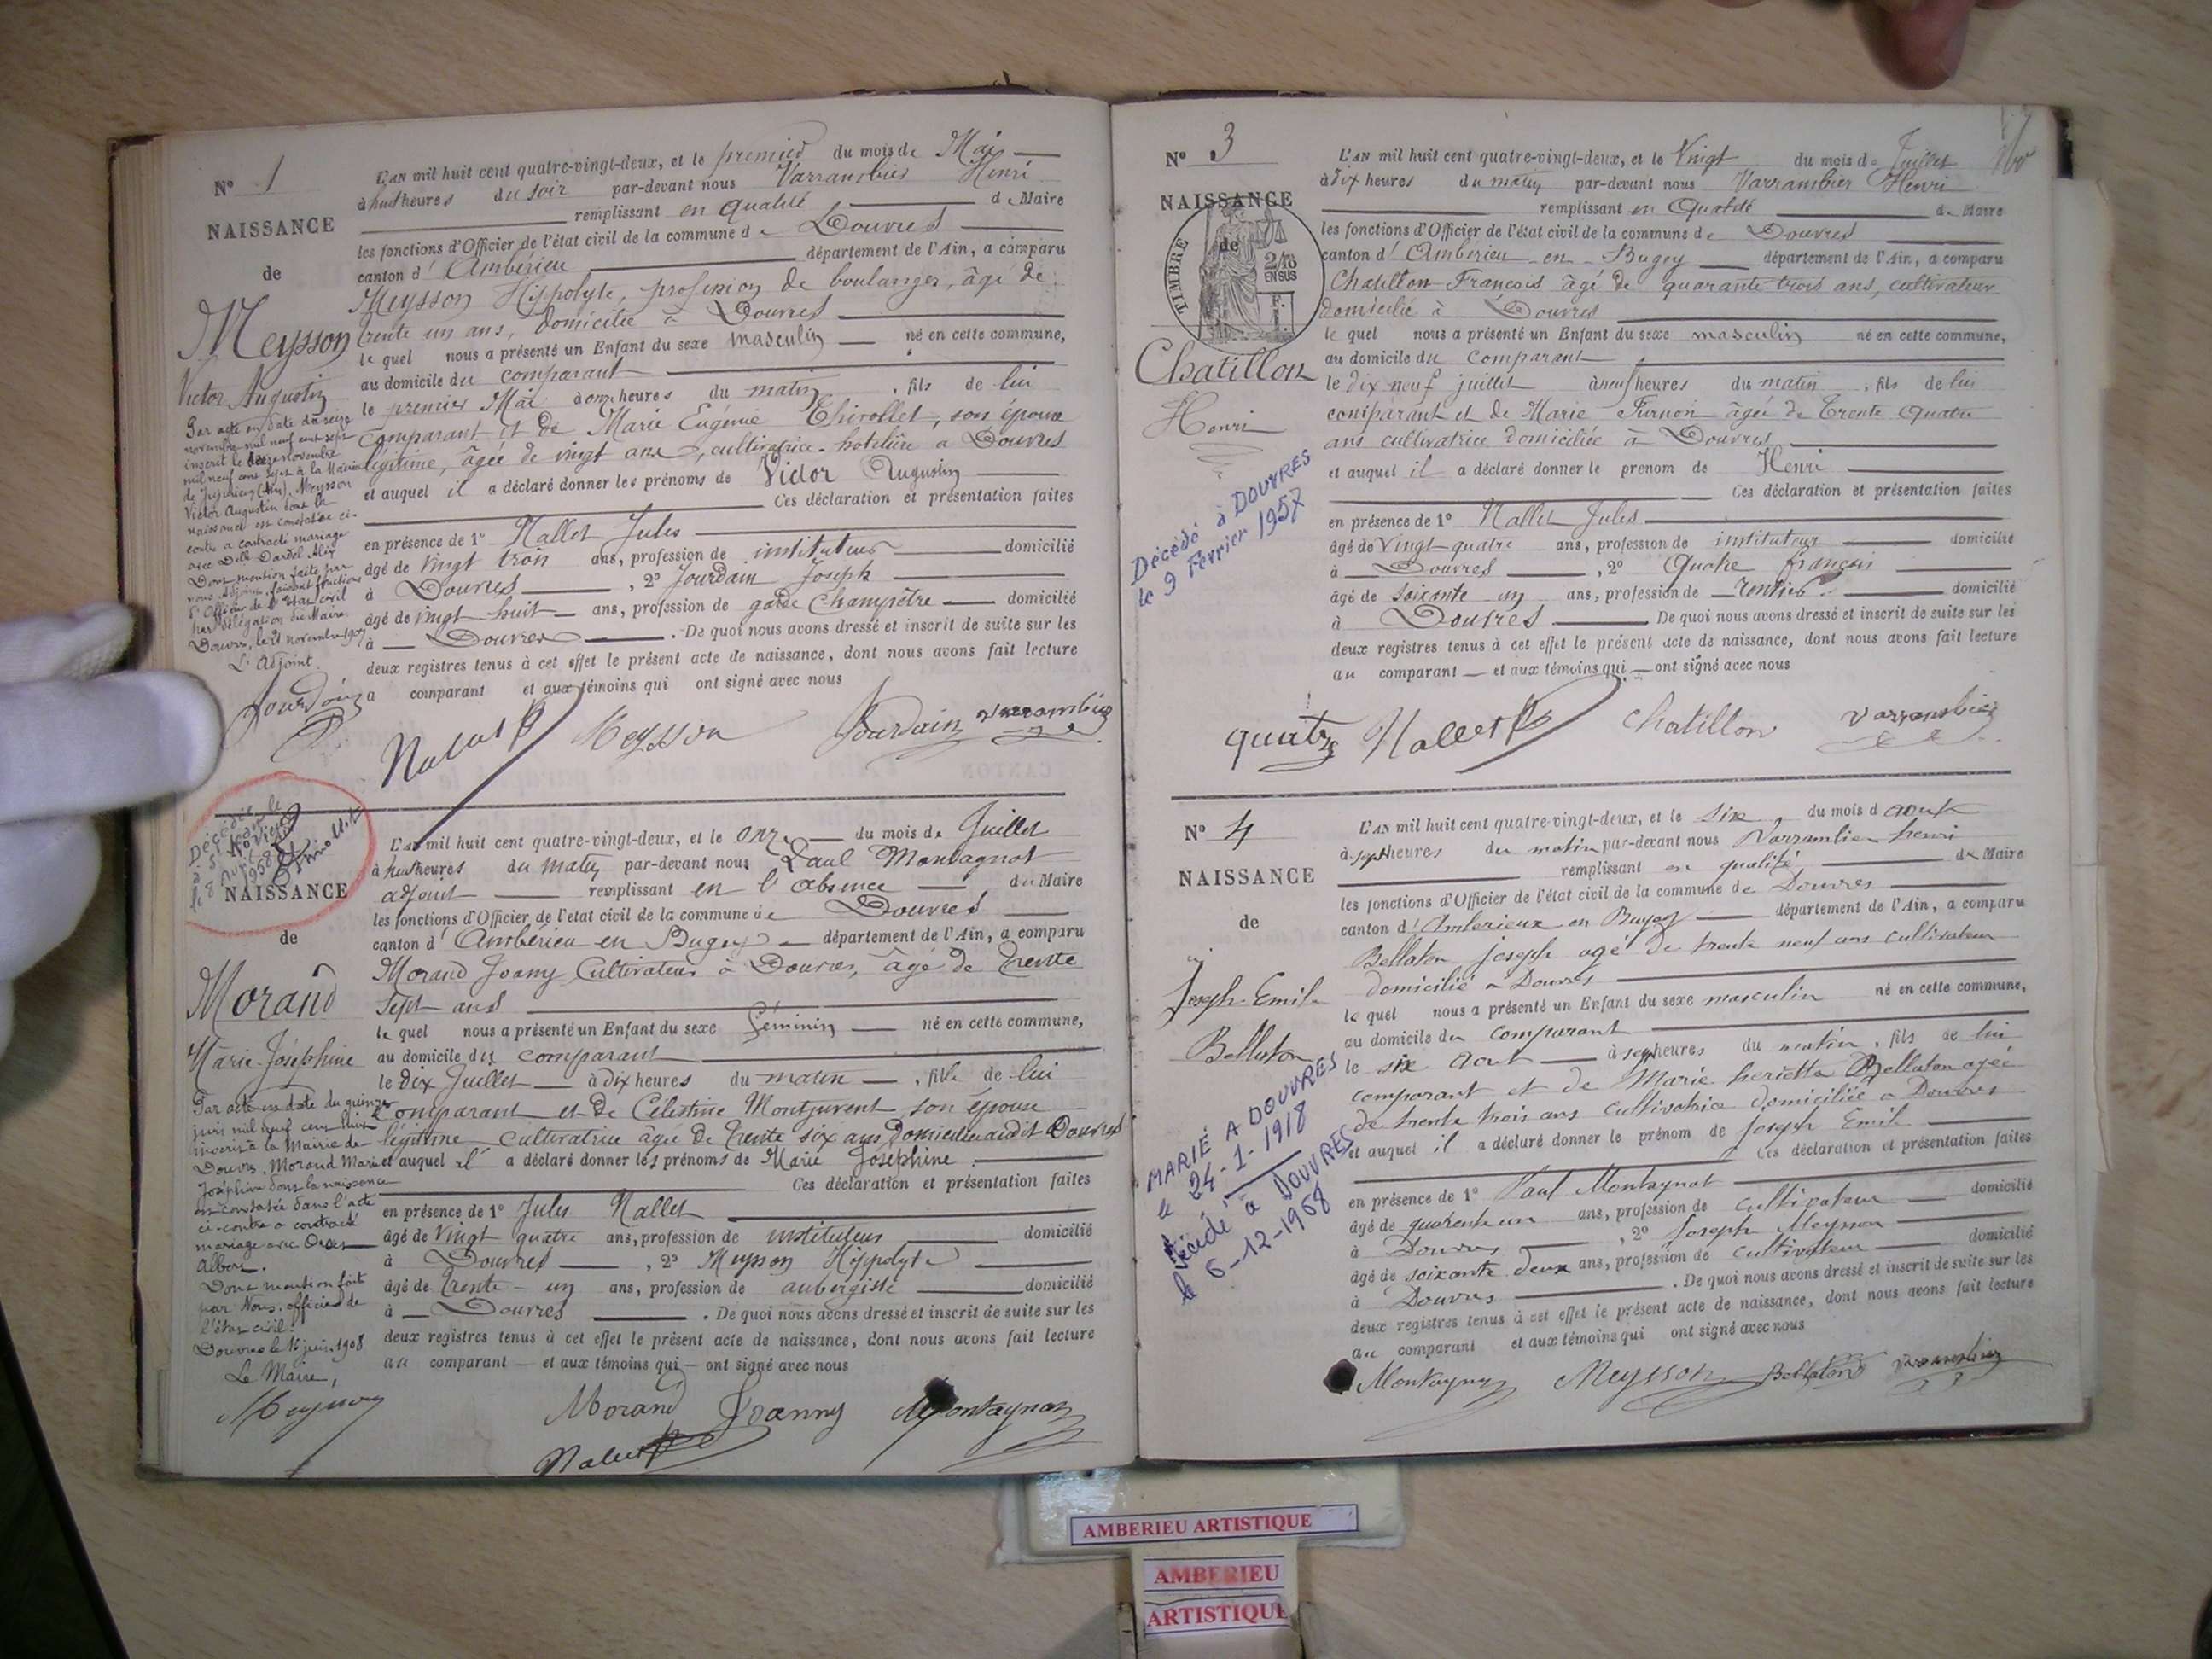 N° 1
NAISSANCE
de
Meysson
Victor Augustin
Par acte en date du seize
novembre mil neuf cent sept
inscrit le seize novembre
mil neuf cent sept à la Mairie
de Jujurieux (Ain), Meysson
Victor Augustin dont la
naissance est constatée ci-
contre a contracté mariage
avec Delle Dardel Alix
Dont mention faite par
nous Adjoint faisant fonctions
d'Officier de l'Etat civil
par délégation du Maire
Douvres, le 21 novembre 1907
L'Adjoint.
Jourdain
L'AN mil huit cent quatre-vingt-deux, et le premier du mois de Mai
à huit heures du soir par-devant nous Varrambier Henri
remplissant en qualité de Maire
les fonctions d'Officier de l'état civil de la commune de Douvres
canton d'Ambérieu département de l'Ain, a comparu
Meysson Hippolyte, profession de boulanger, âgé de
trente un ans, domicilié à Douvres
le quel nous a présenté un Enfant du sexe masculin né en cette commune,
au domicile du comparant
le premier Mai à onze heures du matin, fils de lui
comparant et de Marie Eugénie Thirollet, son épouse
légitime, âgée de vingt ans, cultivatrice-hôtelière à Douvres
et auquel il a déclaré donner les prénoms de Victor Augustin
Ces déclaration et présentation faites
en présence de 1° Nallet Jules
âgé de vingt trois ans, profession de instituteur domicilié
à Douvres, 2° Jourdain Joseph
âgé de vingt huit ans, profession de garde champêtre domicilié
à Douvres. De quoi nous avons dressé et inscrit de suite sur les
deux registres tenus à cet effet le présent acte de naissance, dont nous avons fait lecture
a comparant et aux témoins qui ont signé avec nous
Nallet Meysson Jourdain Varrambier
Décédée le
8 Avril 1958
NAISSANCE
de
Morand
Marie Joséphine
Par acte en date du quinze
juin mil neuf cent huit
inscrit à la Mairie de
Douvres, Morand Marie
Joséphine dont la naissance
est constatée dans l'acte
ci-contre a contracté
mariage avec
Albon.
Dont mention faite
par Nous, officier de
l'état civil.
Douvres le 16 juin 1908
Le Maire,
Meysson
L'AN mil huit cent quatre-vingt-deux, et le onze du mois de Juillet
à huit heures du matin par-devant nous Paul Montagnat
adjoint remplissant en l'absence du Maire
les fonctions d'Officier de l'état civil de la commune de Douvres
canton d'Ambérieu en Bugey département de l'Ain, a comparu
Morand Joanny Cultivateur à Douvres, âgé de trente
sept ans
le quel nous a présenté un Enfant du sexe féminin né en cette commune,
au domicile du comparant
le dix Juillet à dix heures du matin, fille de lui
comparant et de Célestine Montjuvent son épouse
légitime cultivatrice âgée de trente six ans domiciliée audit Douvres
et auquel il a déclaré donner les prénoms de Marie Joséphine
Ces déclaration et présentation faites
en présence de 1° Jules Nallet
âgé de vingt quatre ans, profession de instituteur domicilié
à Douvres, 2° Meysson Hippolyte
âgé de trente-un ans, profession de aubergiste domicilié
à Douvres. De quoi nous avons dressé et inscrit de suite sur les
deux registres tenus à cet effet le présent acte de naissance, dont nous avons fait lecture
au comparant et aux témoins qui ont signé avec nous
Morand Joanny Montagnat
Nallet
N° 3
NAISSANCE
de
TIMBRE
2/10
EN SUS
Chatillon
Henri
Décédé à DOUVRES
le 9 Février 1957
L'AN mil huit cent quatre-vingt-deux, et le Vingt du mois de Juillet
à dix heures du matin par-devant nous Varrambier Henri
remplissant en Qualité de Maire
les fonctions d'Officier de l'état civil de la commune de Douvres
canton d'Ambérieu-en-Bugey département de l'Ain, a comparu
Chatillon François âgé de quarante-trois ans, cultivateur
domicilié à Douvres
le quel nous a présenté un Enfant du sexe masculin né en cette commune,
au domicile du comparant
le dix neuf juillet à neuf heures du matin, fils de lui
comparant et de Marie Furnon âgée de trente quatre
ans cultivatrice domiciliée à Douvres
et auquel il a déclaré donner le prenom de Henri
Ces déclaration et présentation faites
en présence de 1° Nallet Jules
âgé de vingt-quatre ans, profession de instituteur domicilié
à Douvres, 2° Quatre françois
âgé de soixante un ans, profession de rentier domicilié
à Douvres De quoi nous avons dressé et inscrit de suite sur les
deux registres tenus à cet effet le présent acte de naissance, dont nous avons fait lecture
au comparant et aux témoins qui ont signé avec nous
quatre Nallet Chatillon Varrambier
N° 4
NAISSANCE
de
Joseph-Emile
Bellaton
MARIÉ A DOUVRES
le 24-1-1918
Décédé à DOUVRES
le 6-12-1968
L'AN mil huit cent quatre-vingt-deux, et le six du mois d'aout
à sept heures du matin par-devant nous Varrambier henri
remplissant en qualité de Maire
les fonctions d'Officier de l'état civil de la commune de Douvres
canton d'Amberieux en Bugey département de l'Ain, a comparu
Bellaton joseph agé de trente neuf ans cultivateur
domicilié a Douvres
le quel nous a présenté un Enfant du sexe masculin né en cette commune,
au domicile du comparant
le six aout à sept heures du matin, fils de lui
comparant et de Marie henriette Bellaton agée
de trente trois ans cultivatrice domiciliée a Douvres
et auquel il a déclaré donner le prénom de joseph Emile
Ces déclaration et présentation faites
en présence de 1° Paul Montagnat
âgé de quarente un ans, profession de cultivateur domicilié
à Douvres, 2° Joseph Meysson
âgé de soixante deux ans, profession de cultivateur domicilié
à Douvres. De quoi nous avons dressé et inscrit de suite sur les
deux registres tenus à cet effet le présent acte de naissance, dont nous avons fait lecture
au comparant et aux témoins qui ont signé avec nous
Montagnat Meysson Bellaton Varrambier
AMBERIEU ARTISTIQUE
AMBERIEU
ARTISTIQUE